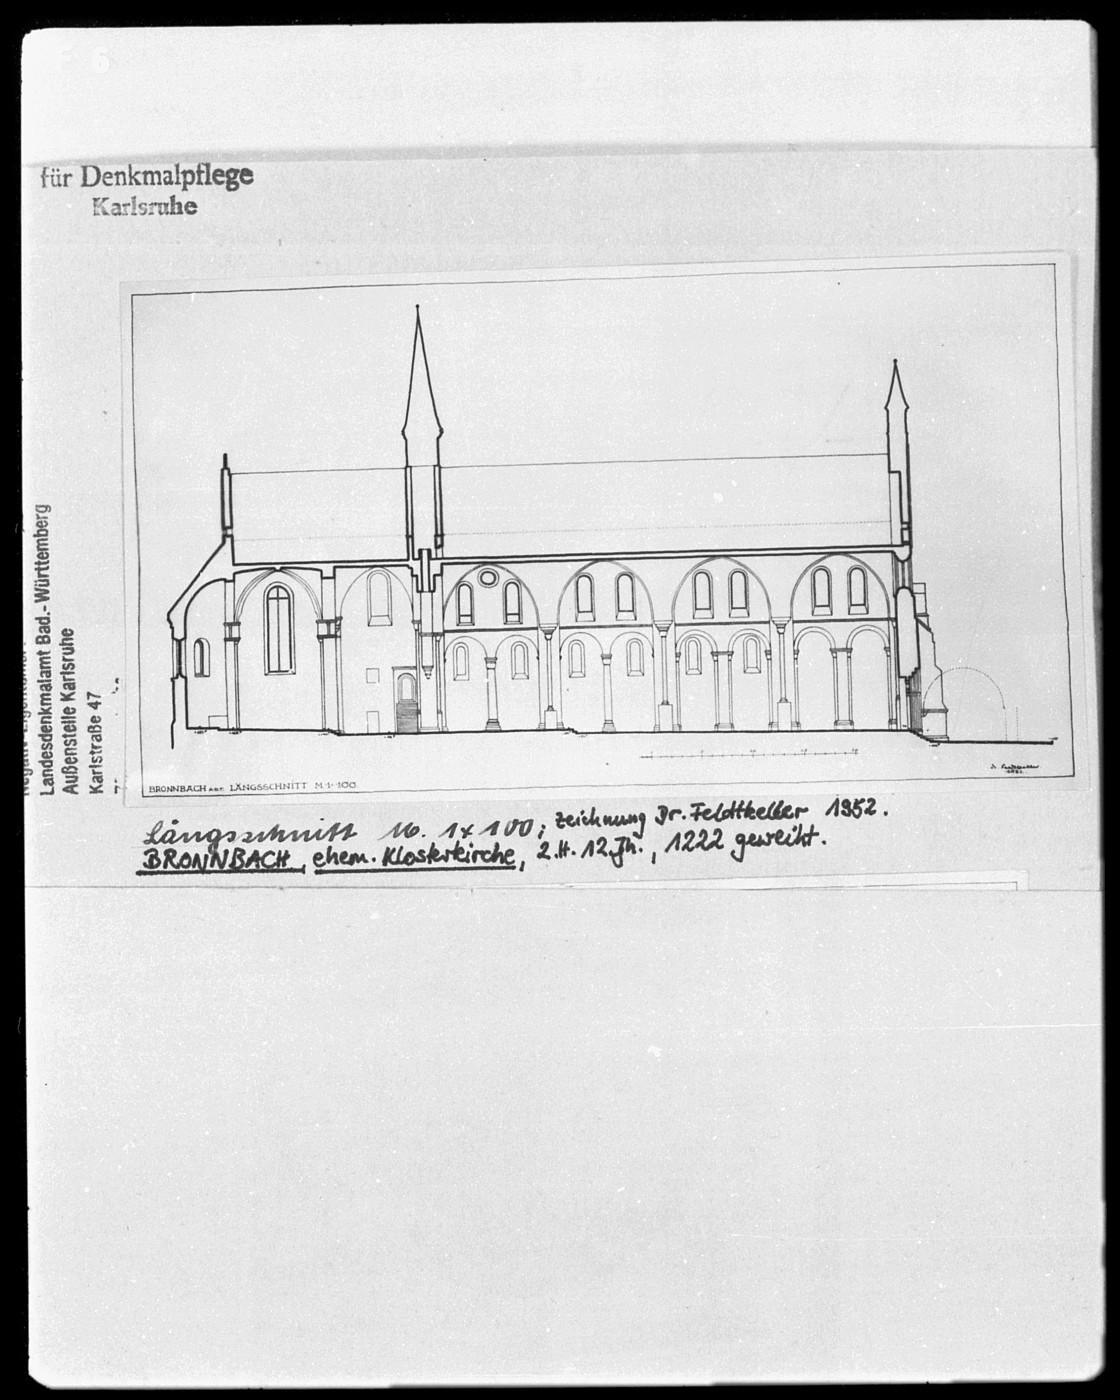 F 6
für Denkmalpflege
Karlsruhe
Landesdenkmalamt Bad.-Württemberg
Außenstelle Karlsruhe
Karlstraße 47
BRONNBACH LÄNGSSCHNITT M. 1:100
Längsschnitt M. 1:100; Zeichnung Dr. Feldtkeller 1952.
BRONNBACH, ehem. Klosterkirche, 2.H. 12.Jh., 1222 geweiht.